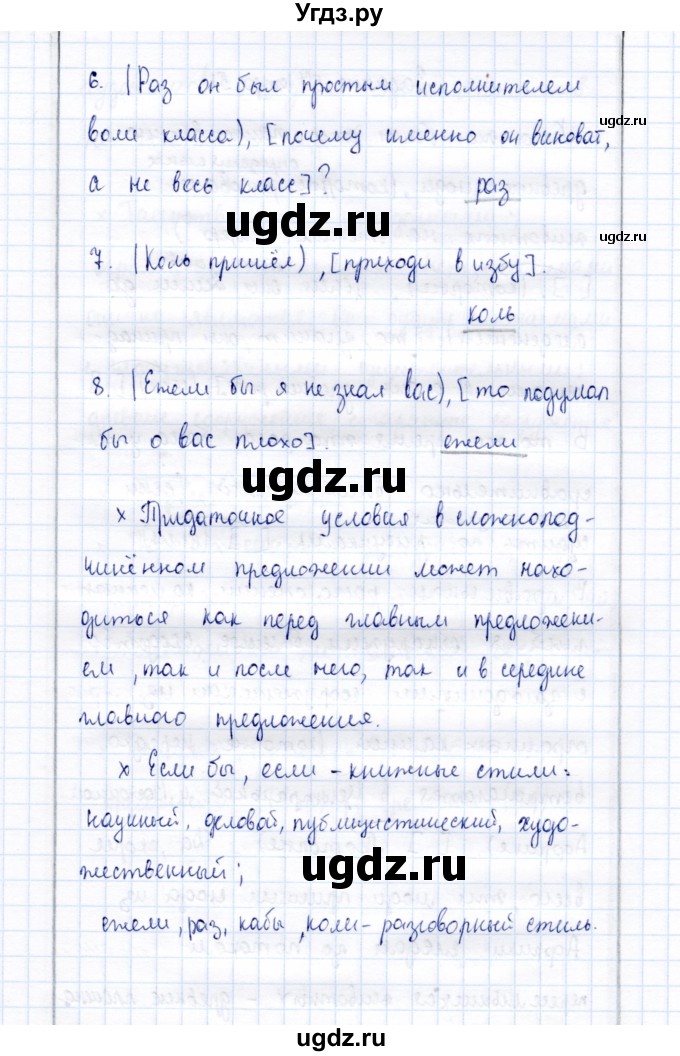 Угдз.ру
6. (Раз он был простым исполнителем
воли класса), [почему именно он виноват,
а не весь класс]? раз
7. (Коль пришёл), [приходи в избу].
коль
8. (Ежели бы я не знал вас), [то подумал
бы о вас плохо]. ежели
х Придаточное условия в сложнопод-
чинённом предложении может нахо-
диться как перед главным предложени-
ем, так и после него, так и в середине
главного предложения.
х Если бы, если - книжные стили:
научный, деловой, публицистический, худо-
жественный;
ежели, раз, кабы, коли - разговорный стиль.
ugdz.ru
ugdz.ru
ugdz.ru
ugdz.ru
ugdz.ru
ugdz.ru
ugdz.ru